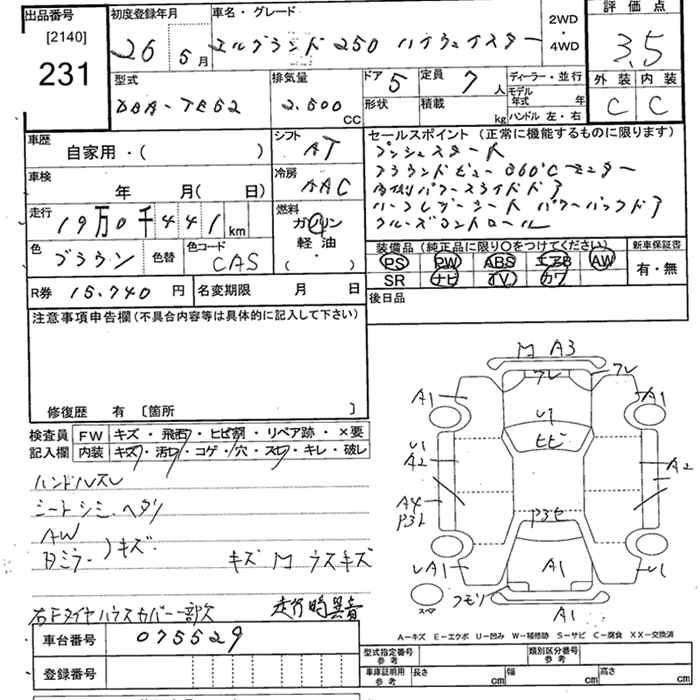 出品番号
[2140]
231
初度登録年月
26年5月
車名・グレード
エルグランド 250 ハイウェイスター
2WD・4WD
評価点
3.5
外装 内装
C C
型式
DBA-TE52
排気量
2.500 CC
ドア 5
形状
定員 7 人
積載 kg
ディーラー・並行
モデル年式 年
ハンドル 左・右
車歴
自家用・( )
車検
年 月(日)
シフト
AT
冷房
AAC
走行
19万0千441km
燃料
ガソリン
軽油
( ・ )
色 ブラウン 色替
色コード CAS
R券 15.740 円
名変期限 月 日
セールスポイント (正常に機能するものに限ります)
プッシュスタート
アラウンドビュー 360℃モニター
両側パワースライドドア
ハーフレザーシート パワーバックドア
クルーズコントロール
装備品 (純正品に限り○をつけてください)
PS PW ABS エアB AW
SR ナビ TV カワ
新車保証書
有・無
後日品
注意事項申告欄 (不具合内容等は具体的に記入して下さい)
修復歴 有 [箇所 ]
検査員記入欄
FW キズ・飛石・ヒビ割・リペア跡・×要
内装 キズ・汚レ・コゲ・穴・スレ・キレ・破レ
ハンドルスレ
シートシミ、ヘタリ
AW
Bミラー )キズ
キズ M ウスキズ
右Fタイヤハウスカバー一部欠
走行時異音
M A3
フレ フレ
A1 A1
U1
ヒビ
U1
A2 A2
A4
P3L
P3セ
UA1 A1 U1
スペ
フモリ
A1
A-キズ E-エクボ U-凹み W-補修跡 S-サビ C-腐食 XX-交換済
車台番号 075529
登録番号
型式指定番号 参考
類別区分番号 参考
車庫証明用 参考
長さ cm
幅 cm
高さ cm